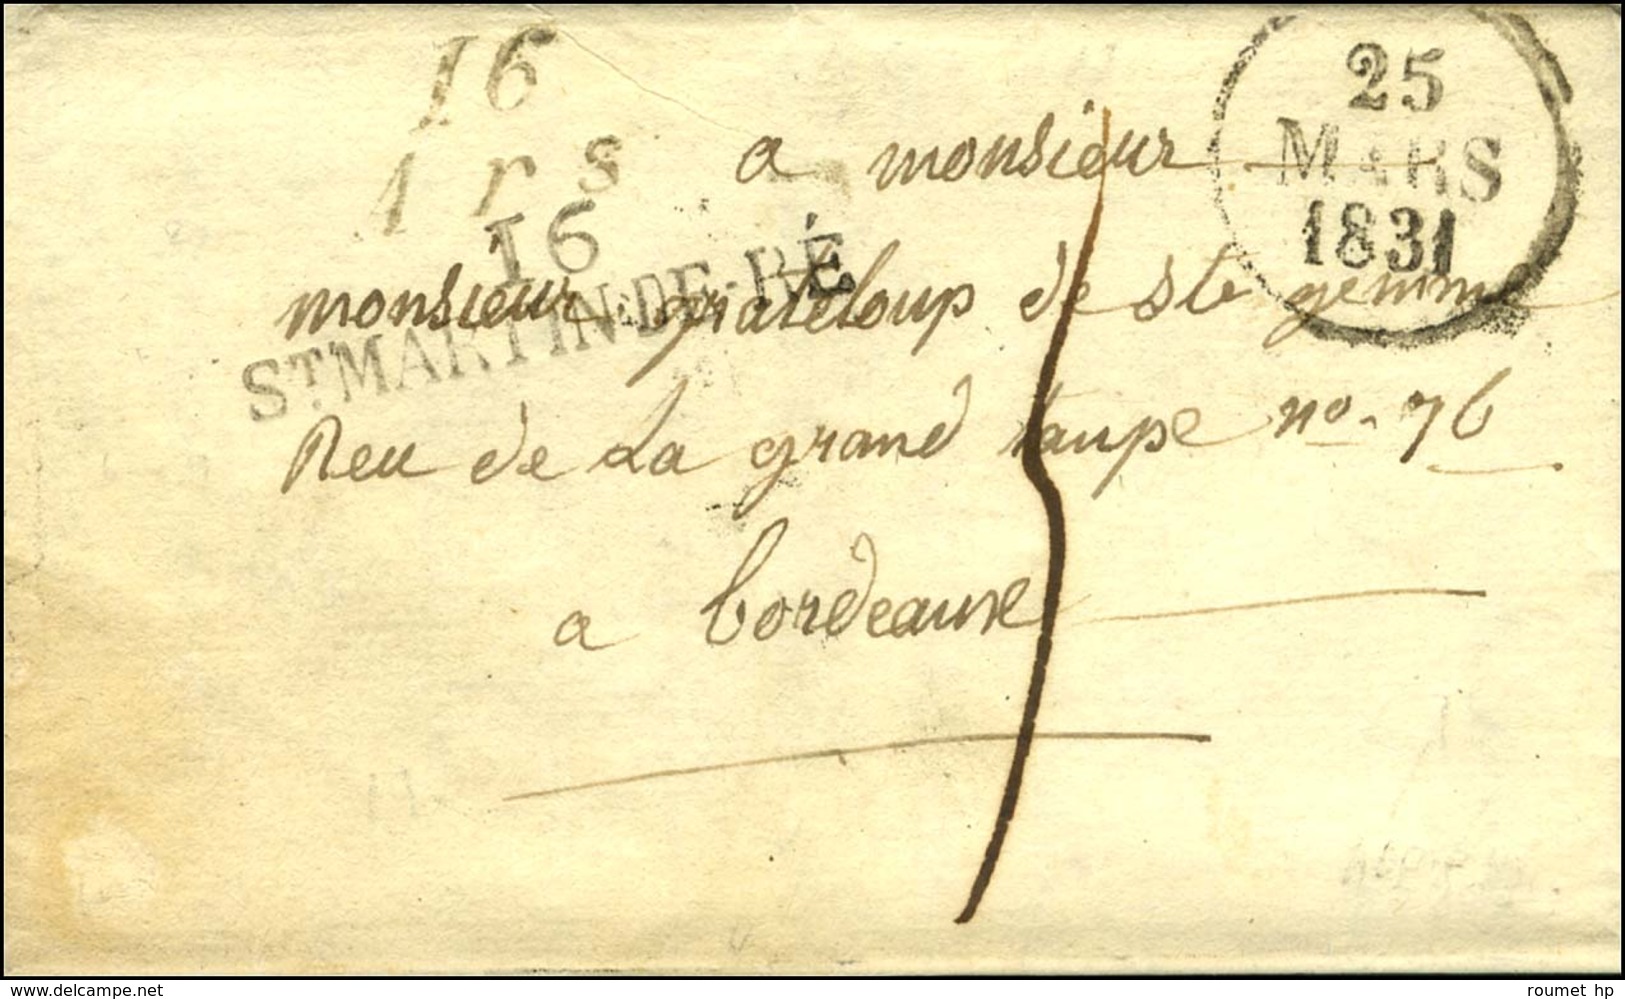 16
Ars
25
MARS
1831
a monsieur
16
ST MARTIN-DE-RÉ
monsieur grateloup de Ste gemme
Reu de La grand taupe no. 76
a bordeaux
roumet hp
www.delcampe.net